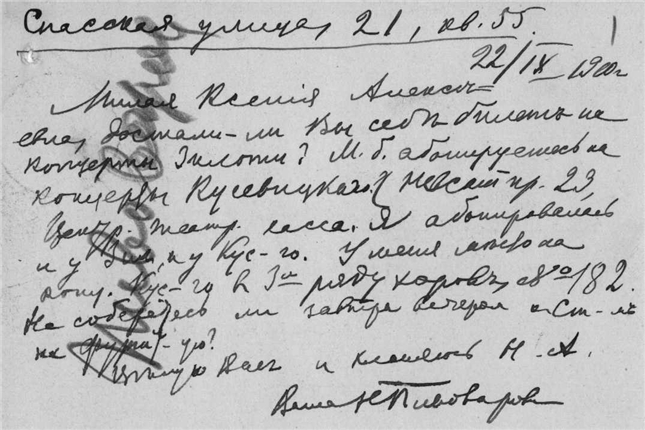 Спасская улица, 21, кв. 55.
22/IX 19
Милая Ксенія Алексѣ=
евна, достали-ли Вы себѣ билетъ на
концерты Зилоти? М. б. абонируетесь на
концерты Кусевицкаго? Невскій пр. 23,
Центр. театр. касса. Я абонировалась
и у Зил. и у Кус-го. У меня мѣсто на
конц. Кус-го въ 3м ряду хоровъ, № 182.
Не соберетесь ли завтра вечеромъ къ Ст-мъ
на
Цѣлую Васъ и кланяюсь Н. А.
Ваша Н Пивоварова